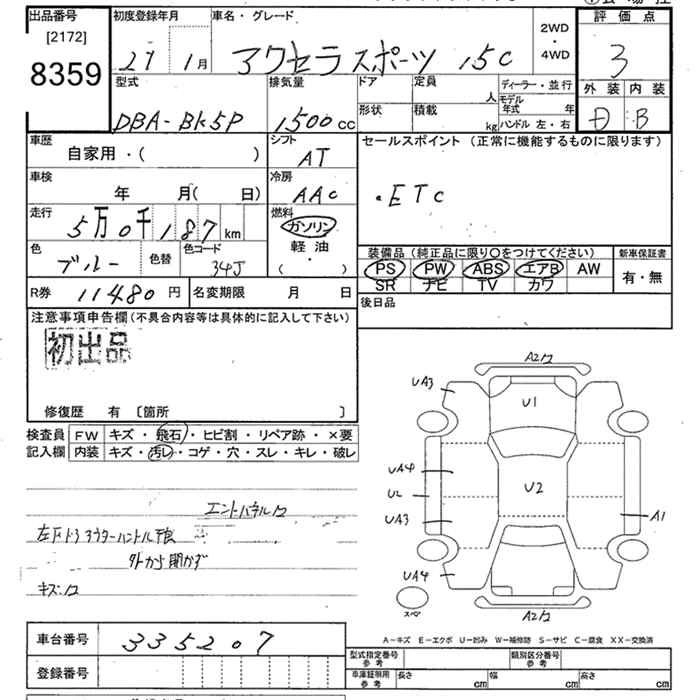 出品番号 初度登録年月 車名・グレード 2WD・4WD 評価点
[2172]
8359
27 1月 アクセラスポーツ 15C 3
型式 排気量 ドア 定員 人 ディーラー・並行 外装 内装
DBA-BK5P 1500cc 形状 積載 kg モデル年式 年 ハンドル 左・右 D B
車歴 シフト セールスポイント (正常に機能するものに限ります)
自家用・( ) AT
車検 冷房
年 月( 日) AAC ・ETC
走行 燃料
5万0千187km ガソリン
色 色替 色コード 軽油 装備品 (純正品に限り○をつけてください) 新車保証書
ブルー 34J ・( ) PS PW ABS エアB AW 有・無
SR ナビ TV カワ
R券 11480円 名変期限 月 日 後日品
注意事項申告欄(不具合内容等は具体的に記入して下さい)
初出品
修復歴 有 [箇所 ]
検査員 FW キズ・飛石・ヒビ割・リペア跡・×要
記入欄 内装 キズ・汚レ・コゲ・穴・スレ・キレ・破レ
A2 UA3 U1
UA4 U2 U2
UA3 A1
UA4 A2 スペア
外から開かず
A-キズ E-エクボ U-凹み W-補修跡 S-サビ C-腐食 XX-交換済
車台番号 335207
登録番号
型式指定番号 参考 類別区分番号 参考
車庫証明用 参考 長さ cm 幅 cm 高さ cm